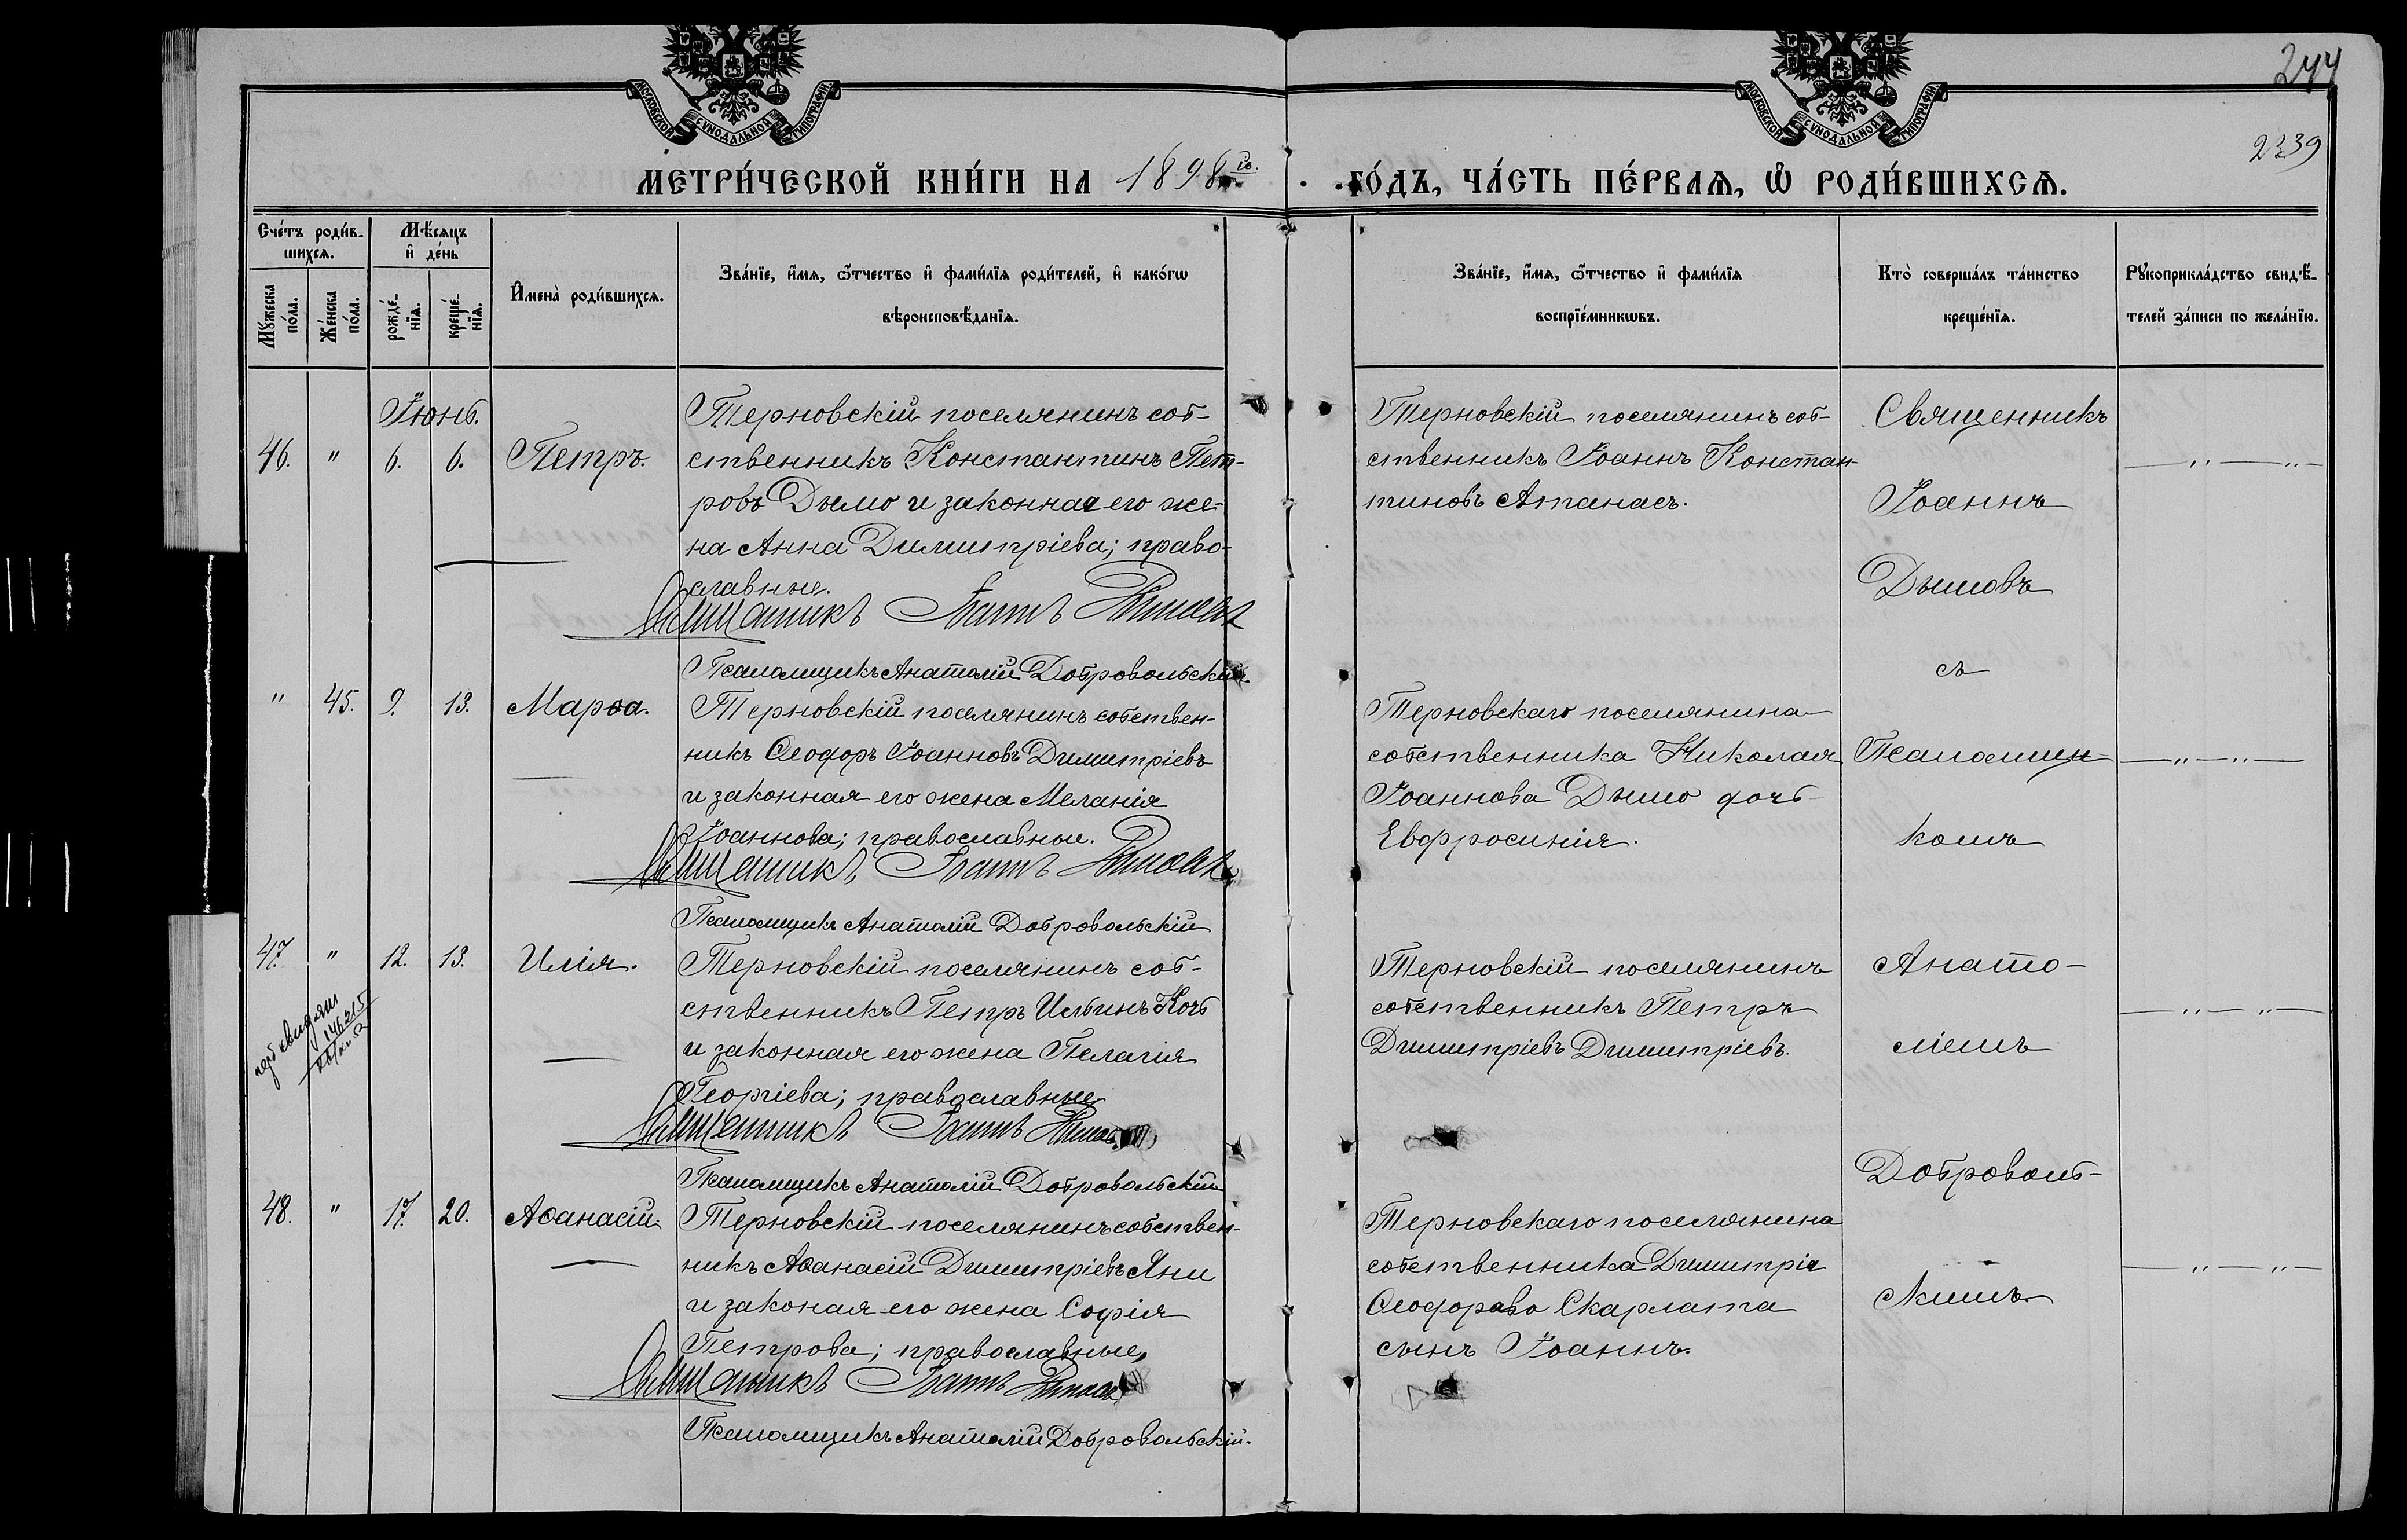 244
2239
МОСКОВСКОЙ СѴНОДАЛЬНОЙ ТИПОГРАФІИ
МОСКОВСКОЙ СѴНОДАЛЬНОЙ ТИПОГРАФІИ
МЕТРИ́ЧЕСКОЙ КНИ́ГИ НА 1898й
ГО́ДЪ, ЧА́СТЬ ПЕ́РВАѦ, Ѽ РОДИ́ВШИХСѦ.
Сче́тъ роди́в-
шихсѧ.
Мꙋ́жеска
по́ла.
Же́нска
по́ла.
Мѣ́сѧцъ
и҆ де́нь
рожде́-
нїѧ.
креще́-
нїѧ.
И҆мена̀ роди́вшихсѧ.
Зва́нїе, и҆́мѧ, ѻ҆́тчество и҆ фами́лїѧ роди́телей, и҆ како́гѡ
вѣроисповѣ́данїѧ.
Зва́нїе, и҆́мѧ, ѻ҆́тчество и҆ фами́лїѧ
воспрїе́мникѡвъ.
Кто̀ соверша́лъ та́инство
креще́нїѧ.
Рꙋкоприкла́дство свидѣ́-
телей за́писи по жела́нїю.
Іюнь.
46. " 6. 6. Петръ.
Терновскій поселянинъ соб-
ственникъ Константинъ Пет-
ровъ Дымо и законная его же-
на Анна Димитріева; право-
славные.
Священникъ Іоаннъ Дымовъ
Псаломщикъ Анатолій Добровольскій
Терновскій поселянинъ соб-
ственникъ Іоаннъ Констан-
тиновъ Атанасъ.
" 45. 9. 13. Марѳа.
Терновскій поселянинъ собствен-
никъ Ѳеодоръ Іоанновъ Димитріевъ
и законная его жена Меланія
Іоаннова; православные.
Священникъ Іоаннъ Дымовъ
Псаломщикъ Анатолій Добровольскій
Терновскаго поселянина
собственника Николая
Іоаннова Дымо дочь
Евфросинія.
47. " 12. 13. Илія.
146215
Терновскій поселянинъ соб-
ственникъ Петръ Ильинъ Кочь
и законная его жена Пелагія
Георгіева; православные
Священникъ Іоаннъ Дымовъ
Псаломщикъ Анатолій Добровольскій
Терновскій поселянинъ
собственникъ Петръ
Димитріевъ Димитріевъ.
48. " 17. 20. Аѳанасій
Терновскій поселянинъ собствен-
никъ Аѳанасій Димитріевъ Яни
и законая его жена Софія
Петрова; православные,
Священникъ Іоаннъ Дымовъ
Псаломщикъ Анатолій Добровольскій.
Терновскаго поселянина
собственника Димитрія
Ѳеодорова Скарлата
сынъ Іоаннъ.
Священникъ
Іоаннъ
Дымовъ
съ
Псаломщи-
комъ
Анато-
ліемъ
Доброволь-
скимъ.